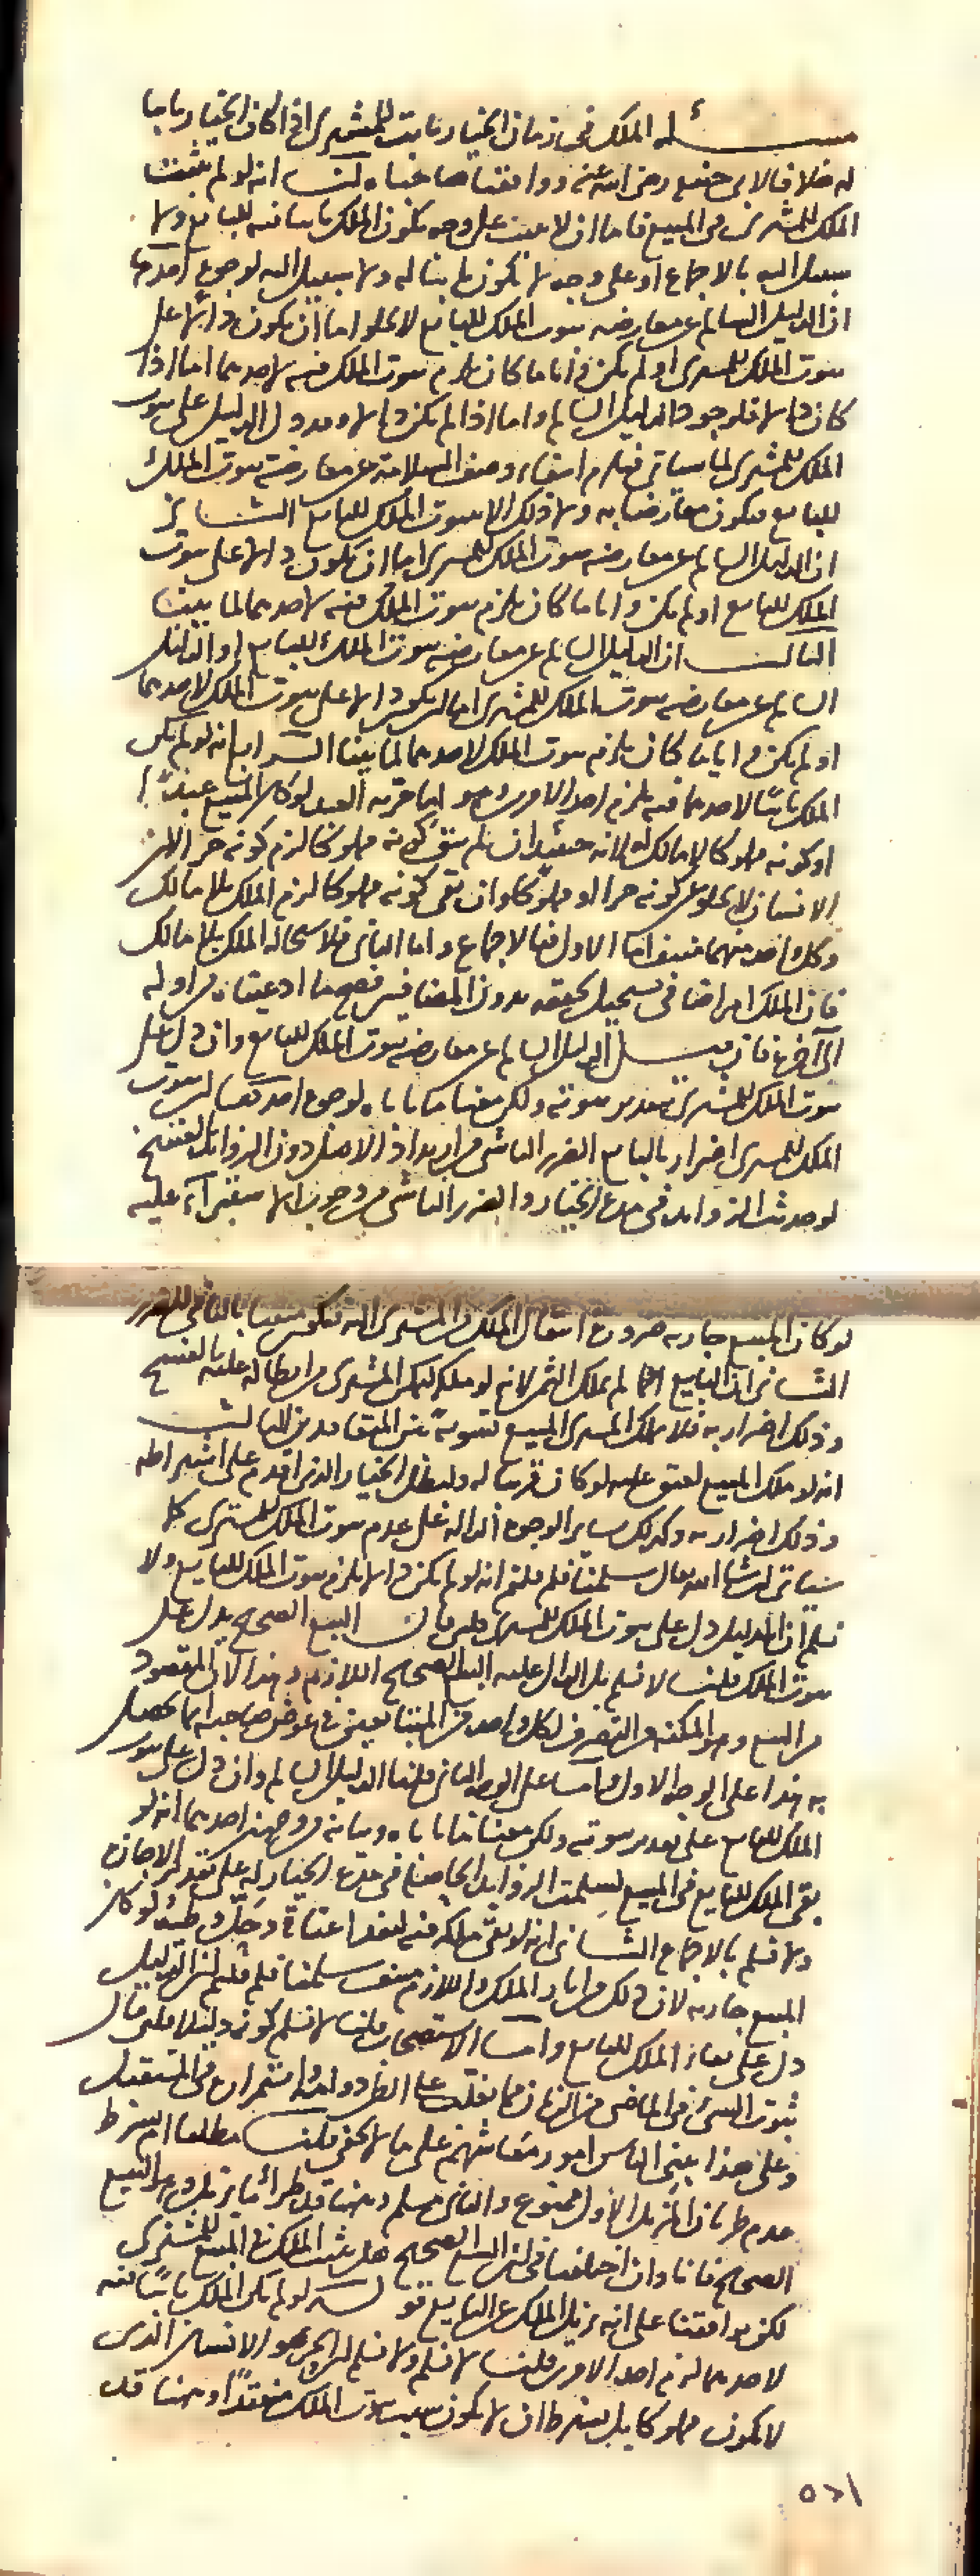 مسئلة الملك في زمان الخيار ثابت للمشتري اذا كان الخيار
له خلافا لابي حنيفة رضي الله عنه ووافقنا صاحباه لنا انه لو لم يثبت
الملك للمشتري في المبيع فاما ان لا يثبت على وجه يكون الملك ثابتا فيه للبايع ولا
سبيل اليه بالاجماع او على وجه لا يكون ثابتا له ولا سبيل اليه لوجوه احدها
ان الدليل السالم عن معارضة ثبوت الملك للبايع لا يخلو اما ان يكون دالا على
ثبوت الملك للمشتري او لم يكن و اياما كان يلزم ثبوت الملك فيه لاحدهما اما اذا
كان دالا فلوجود الدليل السالم واما اذا لم يكن دالا وقد دل الدليل على ثبوت
الملك للمشتري لما سياتي فيلزم انتفاء وصف السلامة عن معارضة ثبوت الملك
للبايع فيكون معارضا به ولا ذلك الا بثبوت الملك للبايع الثاني
ان الدليل السالم عن معارضة ثبوت الملك للمشتري اما ان يكون دالا على ثبوت
الملك للبايع او لم يكن و اياما كان يلزم ثبوت الملك فيه لاحدهما لما بينا
الثالث ان الدليل السالم عن معارضة ثبوت الملك للبايع او الدليل
السالم عن معارضة ثبوت الملك للمشتري اما ان يكون دالا على ثبوت الملك لاحدهما
او لم يكن و اياما كان يلزم ثبوت الملك لاحدهما لما بينا الرابع انه لو لم يكن
الملك ثابتا لاحدهما فيه يلزم احد الامرين وهو اما حرية العبد لو كان المبيع عبدا
او كونه مملوكا لا مالك له لانه حينئذ ان لم يبق كونه مملوكا لزم كونه حرا لان
الانسان لا يخلو عن كونه حرا او مملوكا وان بقي كونه مملوكا لزم الملك بلا مالك
وكل واحد منهما منتف اما الاول فبالاجماع واما الثاني فلاستحالة الملك بلا مالك
فان الملك امر اضافي يستحيل تحققه بدون المضافين فصح ما ادعيناه من اوله
الى آخره فان قيل الدليل السالم عن معارضة ثبوت الملك للبايع وان دل على
ثبوت الملك للمشتري بتقدير ثبوته ولكن معنا ما ياباه لوجوه احدها ان ثبوت
الملك للمشتري اضرار بالبايع الضرر الناشي من استرداد الاصل دون الزوايد بالفسخ
لو حدثت الزوايد في مدة الخيار والضرر الناشي من وجوب الاستبراء عليه
لو كان المبيع جارية ضرورة انتقال الملك من المشتري اليه فيكون منفيا بالنافي للضرر
الثاني ان البايع لم يملك الثمن لانه لو ملكه ليمكن المشتري من ابطاله عليه بالفسخ
وذلك اضرار به فلا يملك المشتري المبيع تسوية بين المتعاقدين الثالث
انه لو ملك المبيع لعتق عليه لو كان قريبا له ولبطل الخيار الذي اقدم على اشتراطه
وذلك اضرار به وكذلك ساير الوجوه الدالة على عدم ثبوت الملك للمشتري كما
سياتي ان شا الله تعالى سلمنا فلم قلتم انه لو لم يكن دالا يلزم ثبوت الملك للبايع ولا
نسلم ان الدليل دل على ثبوت الملك للمشتري فلئن قال البيع الصحيح يدل على
ثبوت الملك قلنا لا نسلم بل الدال عليه البيع الصحيح اللازم وهذا لان المقصود
من البيع وهو المكنة من التصرف لكل واحد من المتبايعين في عوض صاحبه انما يحصل
به هذا على الوجه الاول واما على الوجه الثاني قلنا الدليل السالم وان دل على ثبوت
الملك للبايع على تقدير ثبوته ولكن معنا ما ياباه وبيانه من وجهين احدهما انه لو
بقي الملك للبايع في المبيع لسلمت الزوايد الحاصلة في مدة الخيار له على تقدير الاجازة
ولا نسلم بالاجماع الثاني انه لو بقي ملكه فيه لنفذ اعتاقه وحل وطئه لو كان
المبيع جارية لان ذلك من اثار الملك واللازم منتف سلمنا فلم قلتم ان الدليل
دل على بقاء الملك للبايع واما الاستصحاب قلنا لا نسلم كونه دليلا فلئن قال
ثبوت الشيء في الماضي من الزمان مما يغلب على الظن دوامه واستمراره في المستقبل
وعلى هذا بنى الناس امور معاشهم على ما لا يخفى قلنا مطلقا ام بشرط
عدم طريان المزيل الاول ممنوع والثاني مسلم وههنا قد طرأ ما يزيله وهو البيع
الصحيح فانا وان اختلفنا في ان البيع الصحيح هل يثبت الملك في المبيع للمشتري
لكن توافقنا على انه يزيل الملك عن البايع قوله لو لم يكن الملك ثابتا فيه
لاحدهما لزم احد الامرين قلنا لا نسلم ولا نسلم ان الحر هو الانسان الذي
لا يكون مملوكا بل بشرط ان لا يكون سبب ثبوت الملك منعقدا وههنا قد